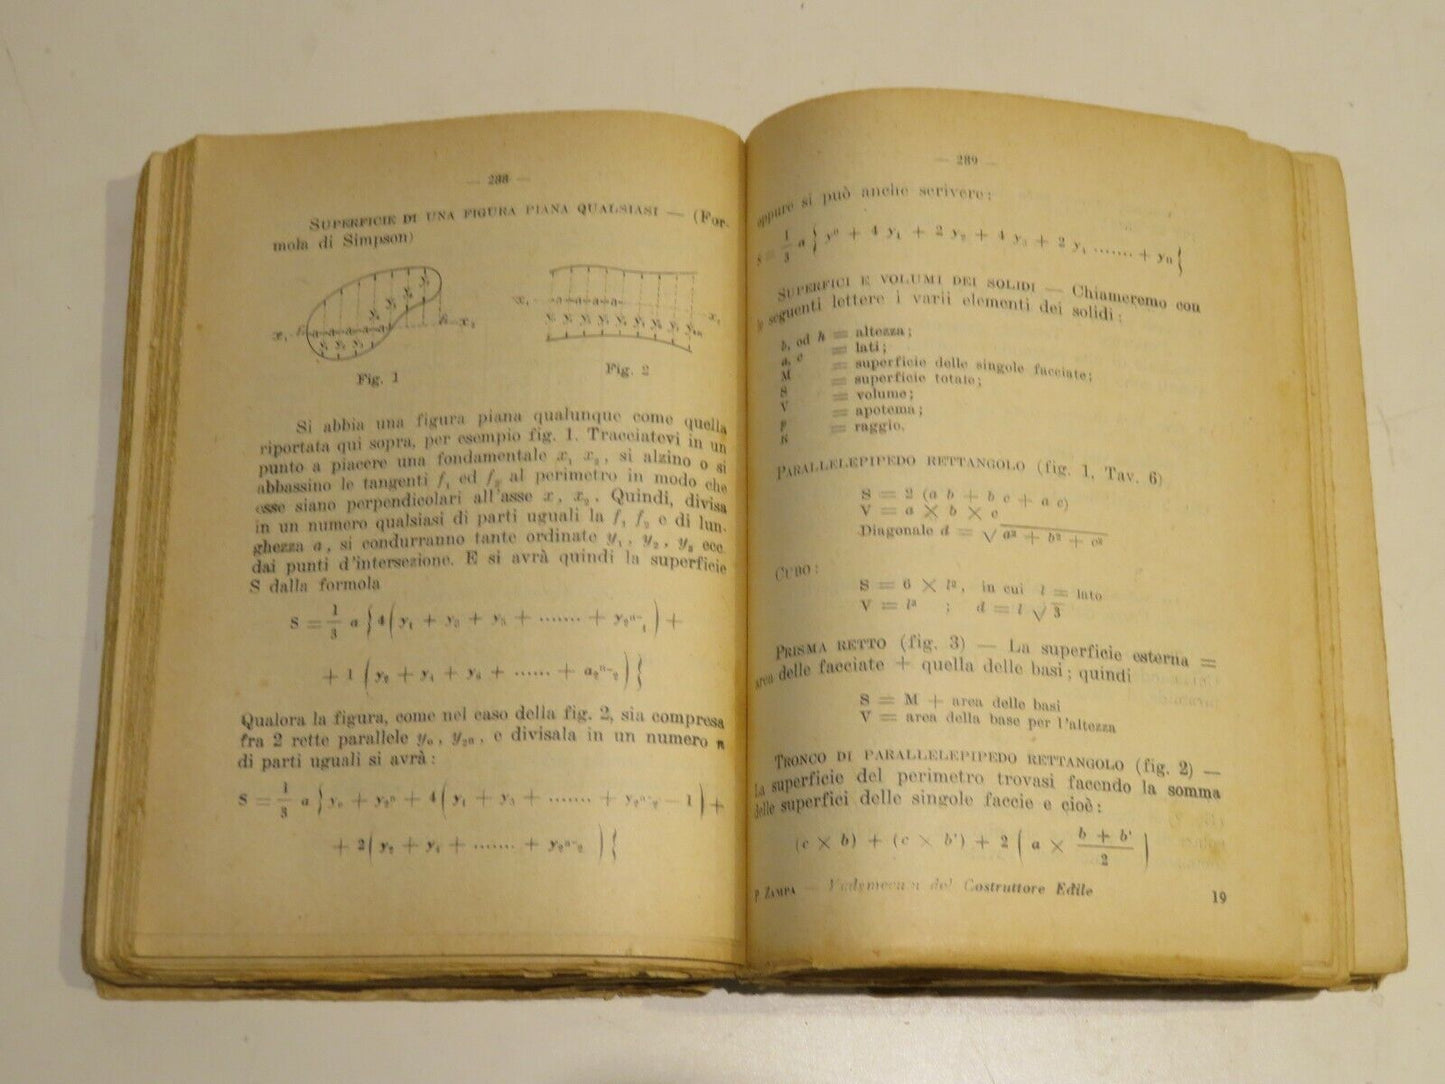 — 288 —
SUPERFICIE DI UNA FIGURA PIANA QUALSIASI — (For-
mola di Simpson)
Fig. 1
Fig. 2
Si abbia una figura piana qualunque come quella
riportata qui sopra, per esempio fig. 1. Tracciatevi in un
punto a piacere una fondamentale x₁ x₂, si alzino o si
abbassino le tangenti f₁ ed f₂ al perimetro in modo che
esse siano perpendicolari all'asse x, x₂. Quindi, divisa
in un numero qualsiasi di parti uguali la f₁ f₂ e di lun-
ghezza a, si condurranno tante ordinate y₁, y₂, y₃ ecc.
dai punti d'intersezione. E si avrà quindi la superficie
S dalla formola
S = 1/3 a { 4 ( y₁ + y₃ + y₅ + ....... + y₂ₙ₋₁ ) +
+ 1 ( y₂ + y₄ + y₆ + ...... + a₂ₙ₋₂ ) {
Qualora la figura, come nel caso della fig. 2, sia compresa
fra 2 rette parallele y₀, y₂ₙ, e divisala in un numero n
di parti uguali si avrà:
S = 1/3 a } y₀ + y₂ₙ + 4 ( y₁ + y₃ + ....... + y₂ₙ₋₂ — 1 ) +
+ 2 ( y₂ + y₄ + ...... + y₂ₙ₋₂ ) {
— 289 —
oppure si può anche scrivere:
S = 1/3 a } y⁰ + 4 y₁ + 2 y₂ + 4 y₃ + 2 y₄ ....... + yₙ {
SUPERFICI E VOLUMI DEI SOLIDI — Chiameremo con
le seguenti lettere i varii elementi dei solidi:
b, od h = altezza;
a, c = lati;
M = superficie delle singole facciate;
S = superficie totale;
V = volume;
p = apotema;
R = raggio.
PARALLELEPIPEDO RETTANGOLO (fig. 1, Tav. 6)
S = 2 (a b + b c + a c)
V = a × b × c
Diagonale d = √a² + b² + c²
CUBO:
S = 6 × l², in cui l = lato
V = l³ ; d = l √3
PRISMA RETTO (fig. 3) — La superficie esterna =
area delle facciate + quella delle basi; quindi
S = M + area delle basi
V = area della base per l'altezza
TRONCO DI PARALLELEPIPEDO RETTANGOLO (fig. 2) —
La superficie del perimetro trovasi facendo la somma
delle superfici delle singole faccie e cioè:
(c × b) + (c × b') + 2 ( a × b + b' / 2 )
P ZAMPA — Vademecum del Costruttore Edile 19